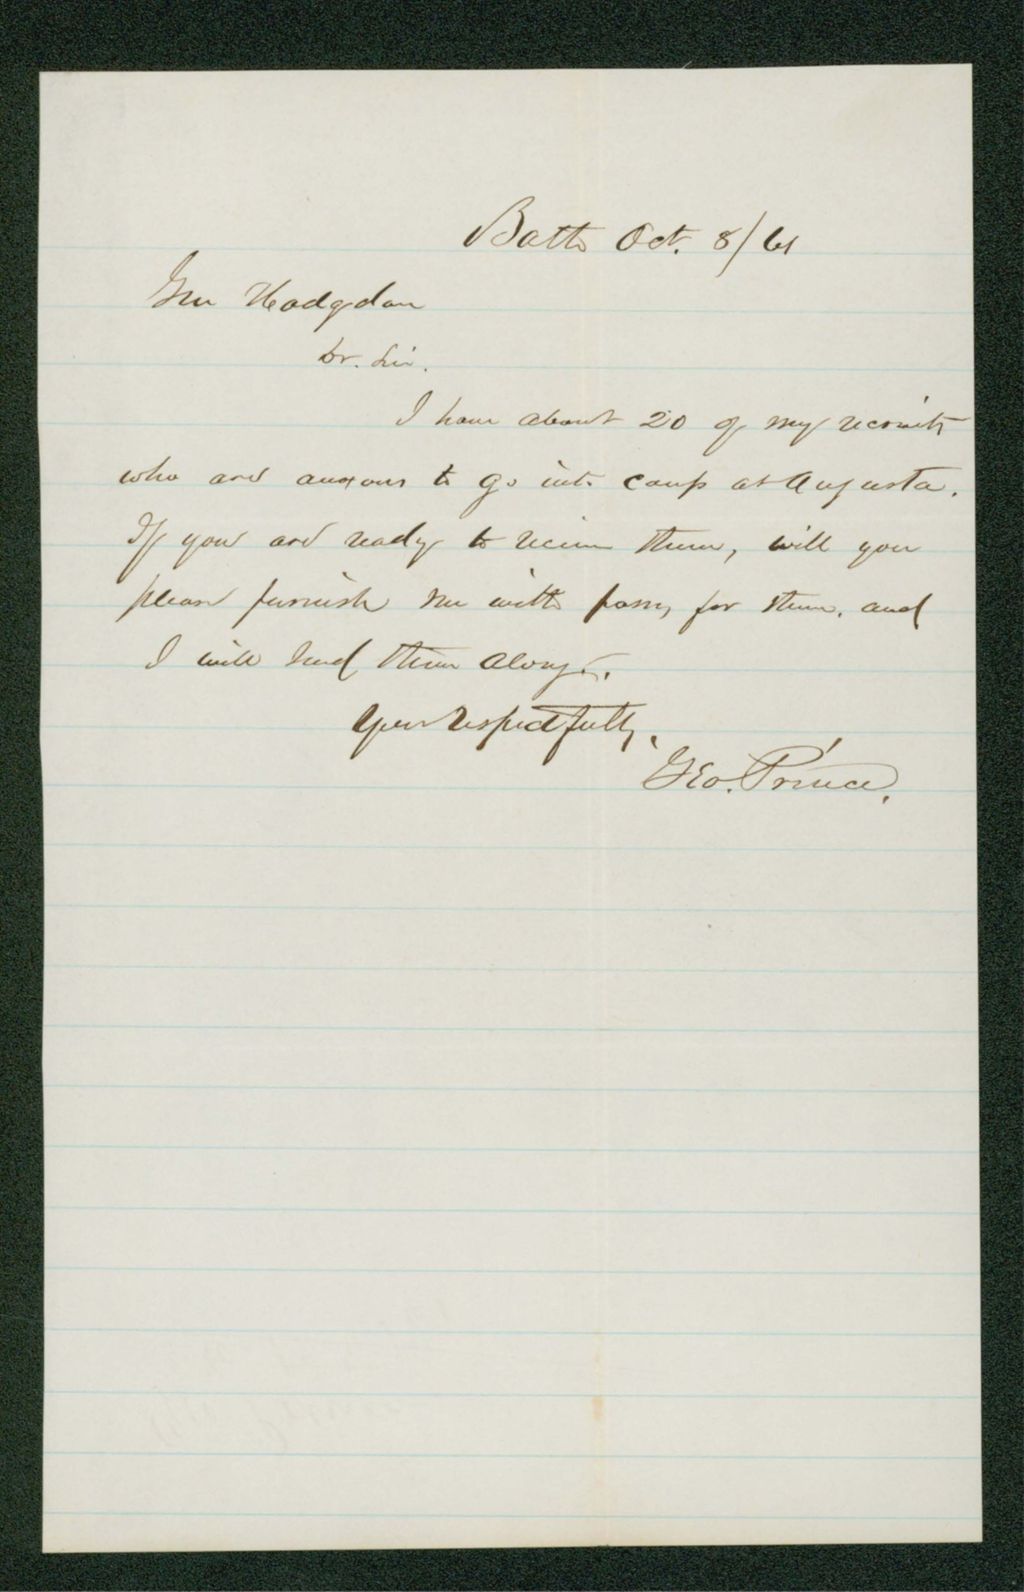 Bath Oct. 8/61
Gen Hodgdon
Dr. Sir.
I have about 20 of my recruits
who are anxious to go into camp at Augusta.
If you are ready to receive them, will you
please furnish me with passes for them, and
I will send them along.
Yours respectfully,
Geo. Prince.